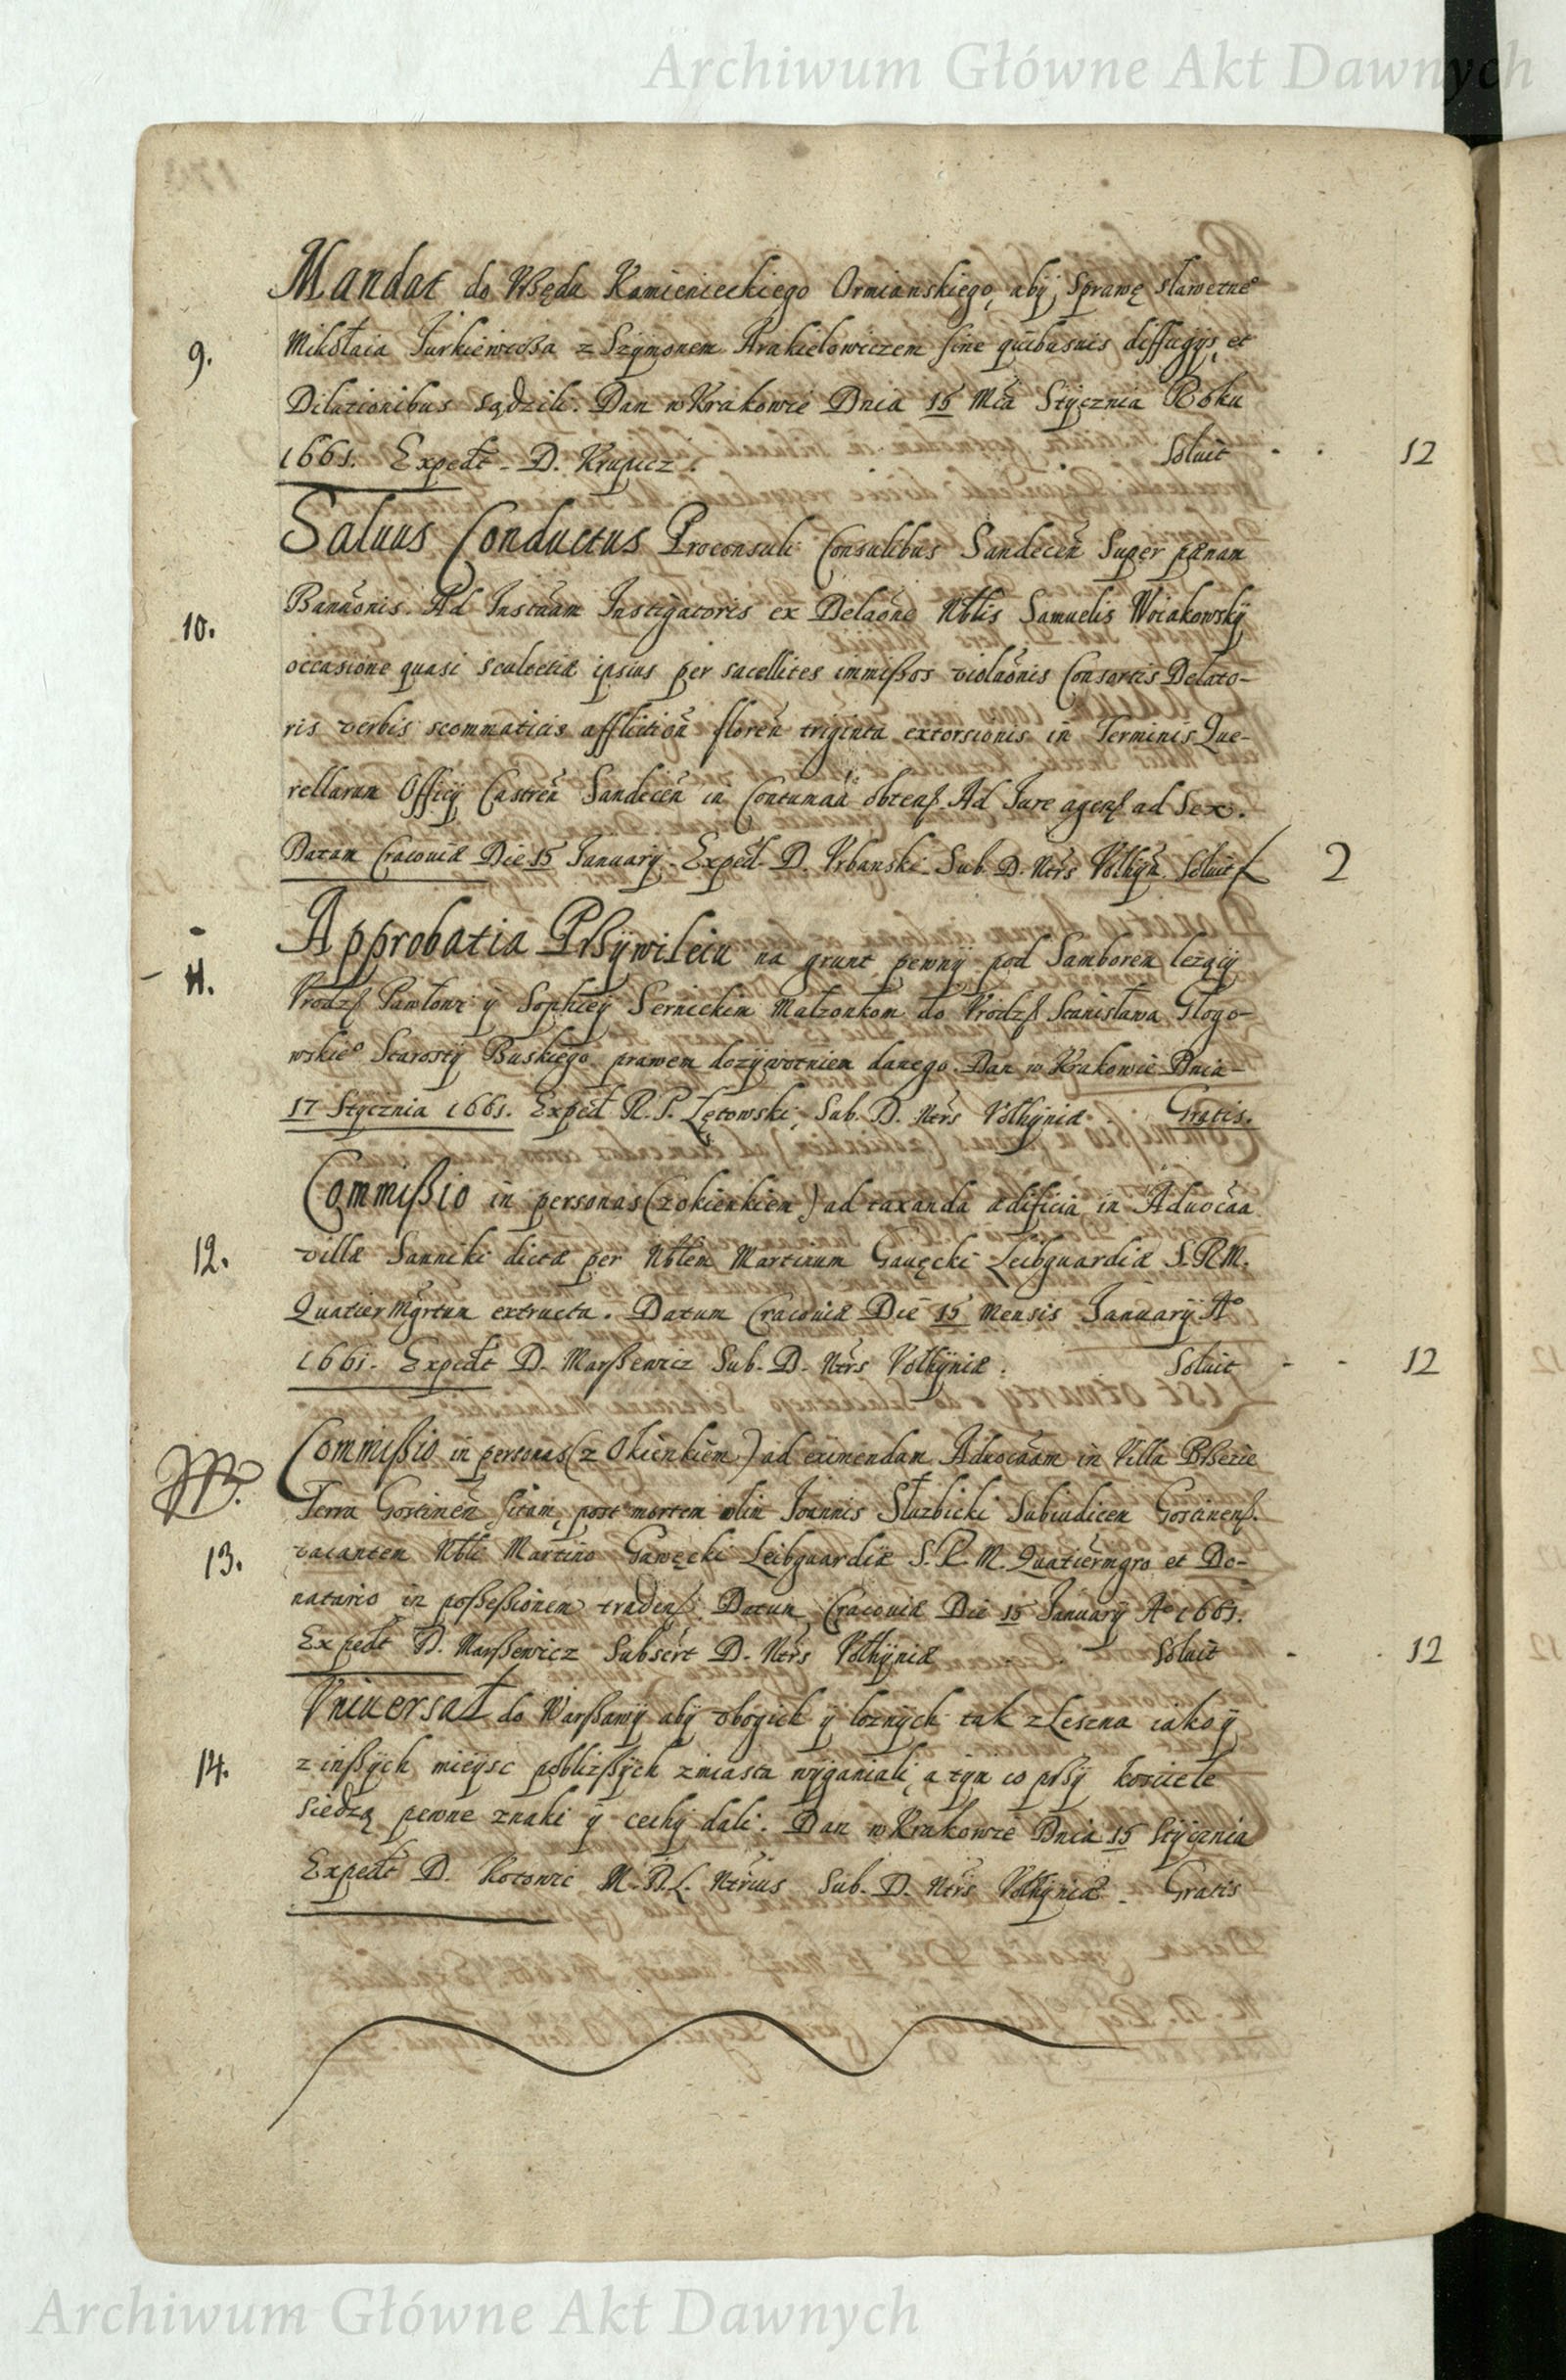 Archiwum Główne Akt Dawnych
Mandat do Vrzędu Kamienieckiego Ormianskiego, aby Sprawę sławetne°
9. Mikołaia Jurkiewicza z Szymonem Arakielowiczem sine quibusuis diffugijs et
Dilationibus sądzili. Dan w Krakowie Dnia 15 Mca Stycznia Roku
1661. Expedt - D. Krupicz. Soluit - - 12
Saluus Conductus Proconsuli Consulibus Sandecen Super pænam
10. Bannonis. Ad Instnam Instigatoris ex Delaone Nblis Samuelis Woiakowsky
occasione quasi ipsius per satellites immißos violaonis Consortis Delato-
ris verbis scommaticis affliction floren triginta extorsionis in Terminis Que-
rellarum Officij Castren Sandecen in obtenß. Ad Jure agenß ad Sex.
Datum Cracouiæ Die 15 January. Exped. D. Vrbanski Sub. D. Ntrs Volhyn. Soluit 2
Approbatia Przywileiu na grunt pewny pod Samborem lezący
11. Vrodzß Pawłowi y Sophiey Sernickim Małzonkom do Vrodzß Stanisława Głogo-
wskie° Starosty Buskiego prawem dozywotniem danego. Dan w Krakowie Dnia
17 Stycznia 1661. Expedt R. P. Lętowski, Sub. D. Ntrs Volhyniæ Gratis.
Commißio in personas (z okienkiem) ad taxanda ædificia in Aduocaa
12. villæ Sanniki dictæ per Nblem Martinum Gawęcki Leibguardiæ S.R.M.
QuatierMgrtum extructa. Datum Cracouiæ Die 15 Mensis January A°
1661. Expedt D. Marßewicz Sub. D. Ntrs Volhyniæ. Soluit - - 12
Commißio in personas (z Okienkiem) ad eximendam Aduocaam in Villa
Terra Gostinen sitam, post mortem olim Joannis Słuzbicki Subiudicem Gostinenß.
13. vacantem Nbli Martino Gawęcki Leibguardiæ S. R. M. Quatiermgro et Do-
natario in poßeßionem tradenß. Datum Cracouiæ Die 15 January A° 1661.
Expedt D. Marßewicz Subscrt D. Ntrs Volhyniæ Soluit - - 12
Vniuersał do Warßawy aby vbogich y loznych tak z Leszna iako y
14. z inßych mieysc pobliżßych z miasta wyganiali, a tym co przy kosciele
siedzą pewne znaki y cechy dali. Dan w Krakowie Dnia 15 Stycznia
Expedt D. Kotowic M. D. L. Ntrius Sub. D. Ntrs Volhyniæ. Gratis
Archiwum Główne Akt Dawnych